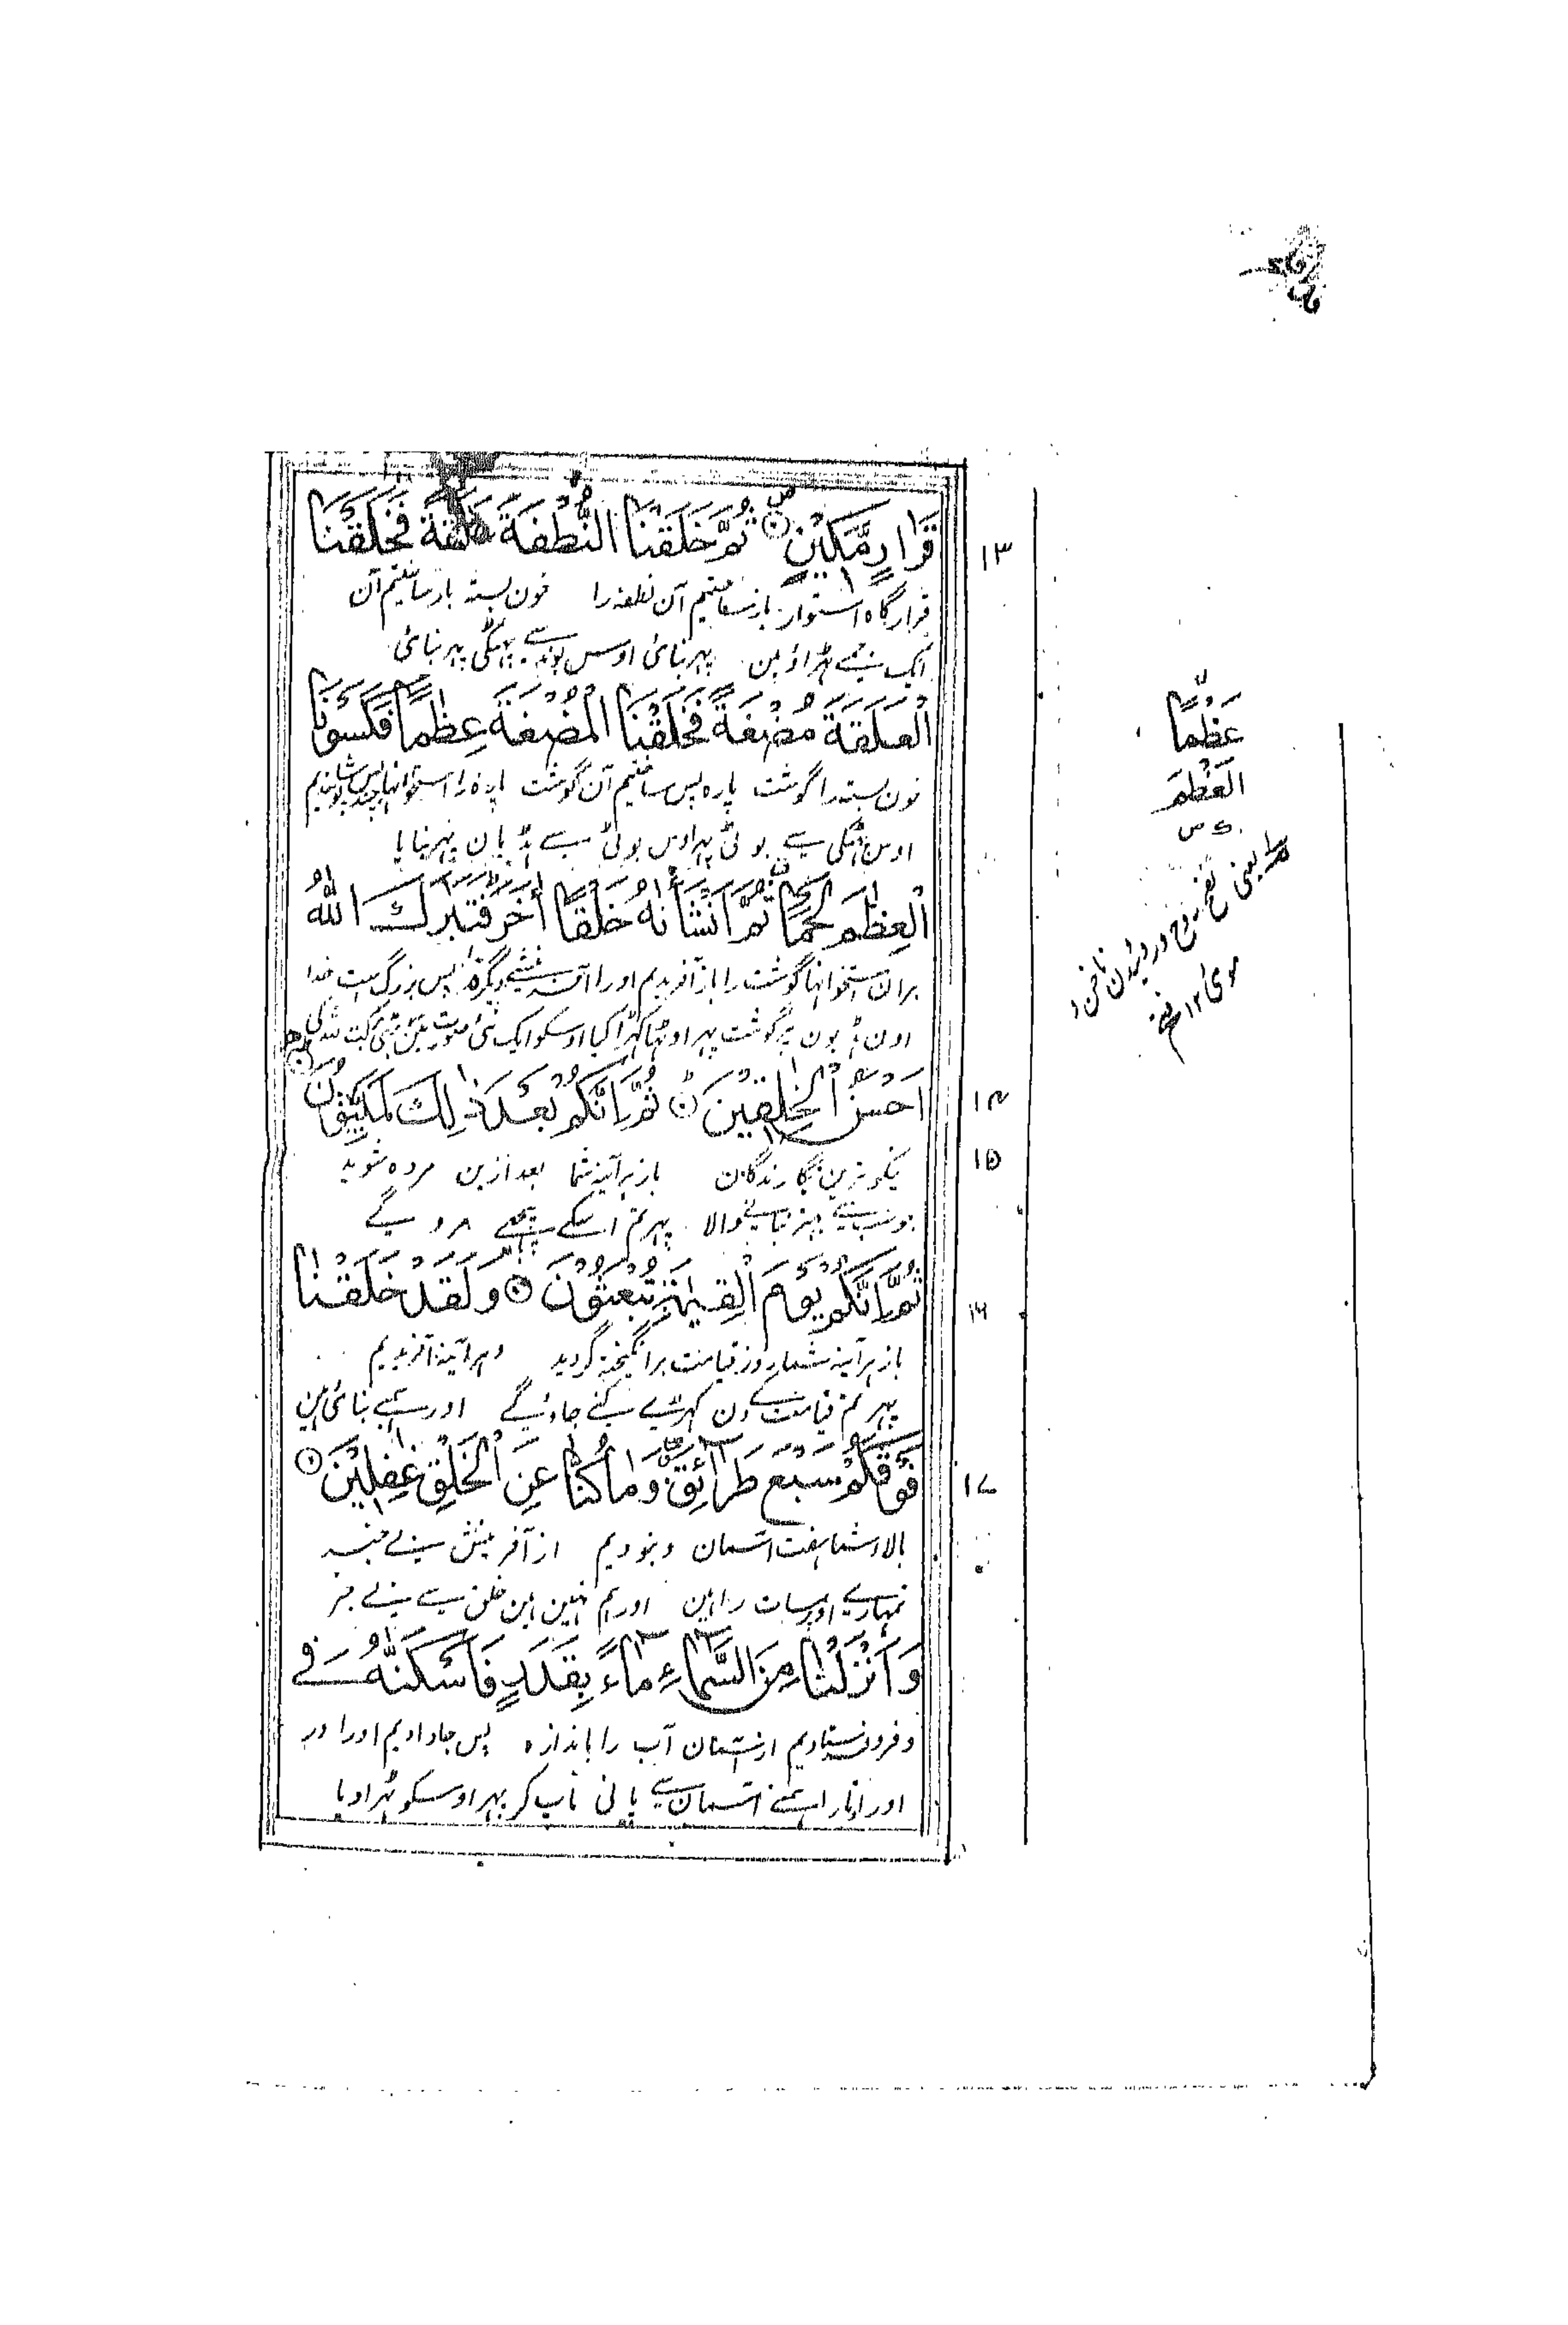 قَرَارٍ مَّكِيْنٍ ثُمَّ خَلَقْنَا النُّطْفَةَ عَلَقَةً فَخَلَقْنَا
۱۳
قرارگاه استوار باز ساختیم آن نطفه را خون بسته باز ساختیم آن
ایک جمے ٹہراؤ مین پہر بنائی اوس بوند سے پہٹکی پہر بنائی
الْعَلَقَةَ مُضْغَةً فَخَلَقْنَا الْمُضْغَةَ عِظٰمًا فَكَسَوْنَا
خون بسته را گوشت پاره پس ساختیم آن گوشت پاره را استخوانهاچند پس پوشانیدیم
اوس پہٹکی سے بوٹی پہر اوس بوٹی سے ہڈیان پہر پنایا
الْعِظٰمَ لَحْمًا ثُمَّ اَنْشَاْنٰهُ خَلْقًا اٰخَرَ فَتَبٰرَكَ اللّٰهُ
بران استخوانها گوشت را باز آفریدیم اورا آفرینشے دیگر پس بزرگ است خدا
اون ہڈیون پر گوشت پہر اوٹہا کہڑا کیا اوسکو ایک نئی صورت مین بڑی برکت اللہ کی
اَحْسَنُ الْخٰلِقِيْنَ ثُمَّ اِنَّكُمْ بَعْدَ ذٰلِكَ لَمَيِّتُوْنَ
۱۴
۱۵
نیکوترین نگارندگان باز هرآینه شما بعد ازین مرده شوید
جو سب سے بہتر بنانے والا پہر تم اسکے پیچھے مرو گے
ثُمَّ اِنَّكُمْ يَوْمَ الْقِيٰمَةِ تُبْعَثُوْنَ وَلَقَدْ خَلَقْنَا
۱۶
باز هرآینه شما روز قیامت برانگیخته گردید و هرآینه آفریدیم
پہر تم قیامت کے دن کہڑے کئے جاؤگے اور ہمنے بنائی ہین
فَوْقَكُمْ سَبْعَ طَرَآئِقَ وَمَا كُنَّا عَنِ الْخَلْقِ غٰفِلِيْنَ
۱۷
بالاء شما هفت آسمان و نبودیم از آفرینش بیخبر
تمہارے اوپر سات راہین اور ہم نہین ہین خلق سے بے خبر
وَاَنْزَلْنَا مِنَ السَّمَآءِ مَآءً بِقَدَرٍ فَاَسْكَنّٰهُ فِي
و فرو فرستادیم از آسمان آب را باندازه پس جا دادیم اورا در
اور اتارا ہمنے آسمان سے پانی ناپ کر پہر اوسکو ٹہرا دیا
عَظْمًا
الْعَظْمَ
ے ص
یعنی نفخ روح و روئیدن ناخن و
موی ۱۲